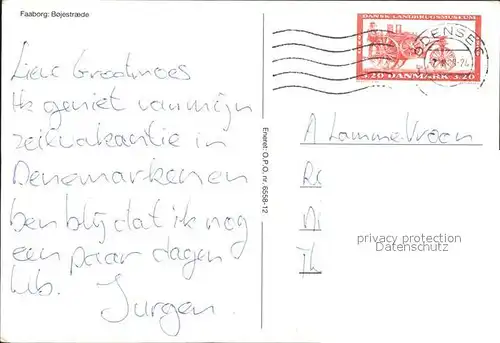 Faaborg: Bøjestræde
DANSK LANDBRUGSMUSEUM
3.20 DANMARK 3.20
ODENSE C
Lieve Grootmoes
Ik geniet van mijn
zeilvakantie in
Denemarken en
ben blij dat ik nog
een paar dagen
heb. Jurgen.
Eneret: O.P.O. nr. 6558-12
A Lamme-Vroon
privacy protection
DanskOmdeler